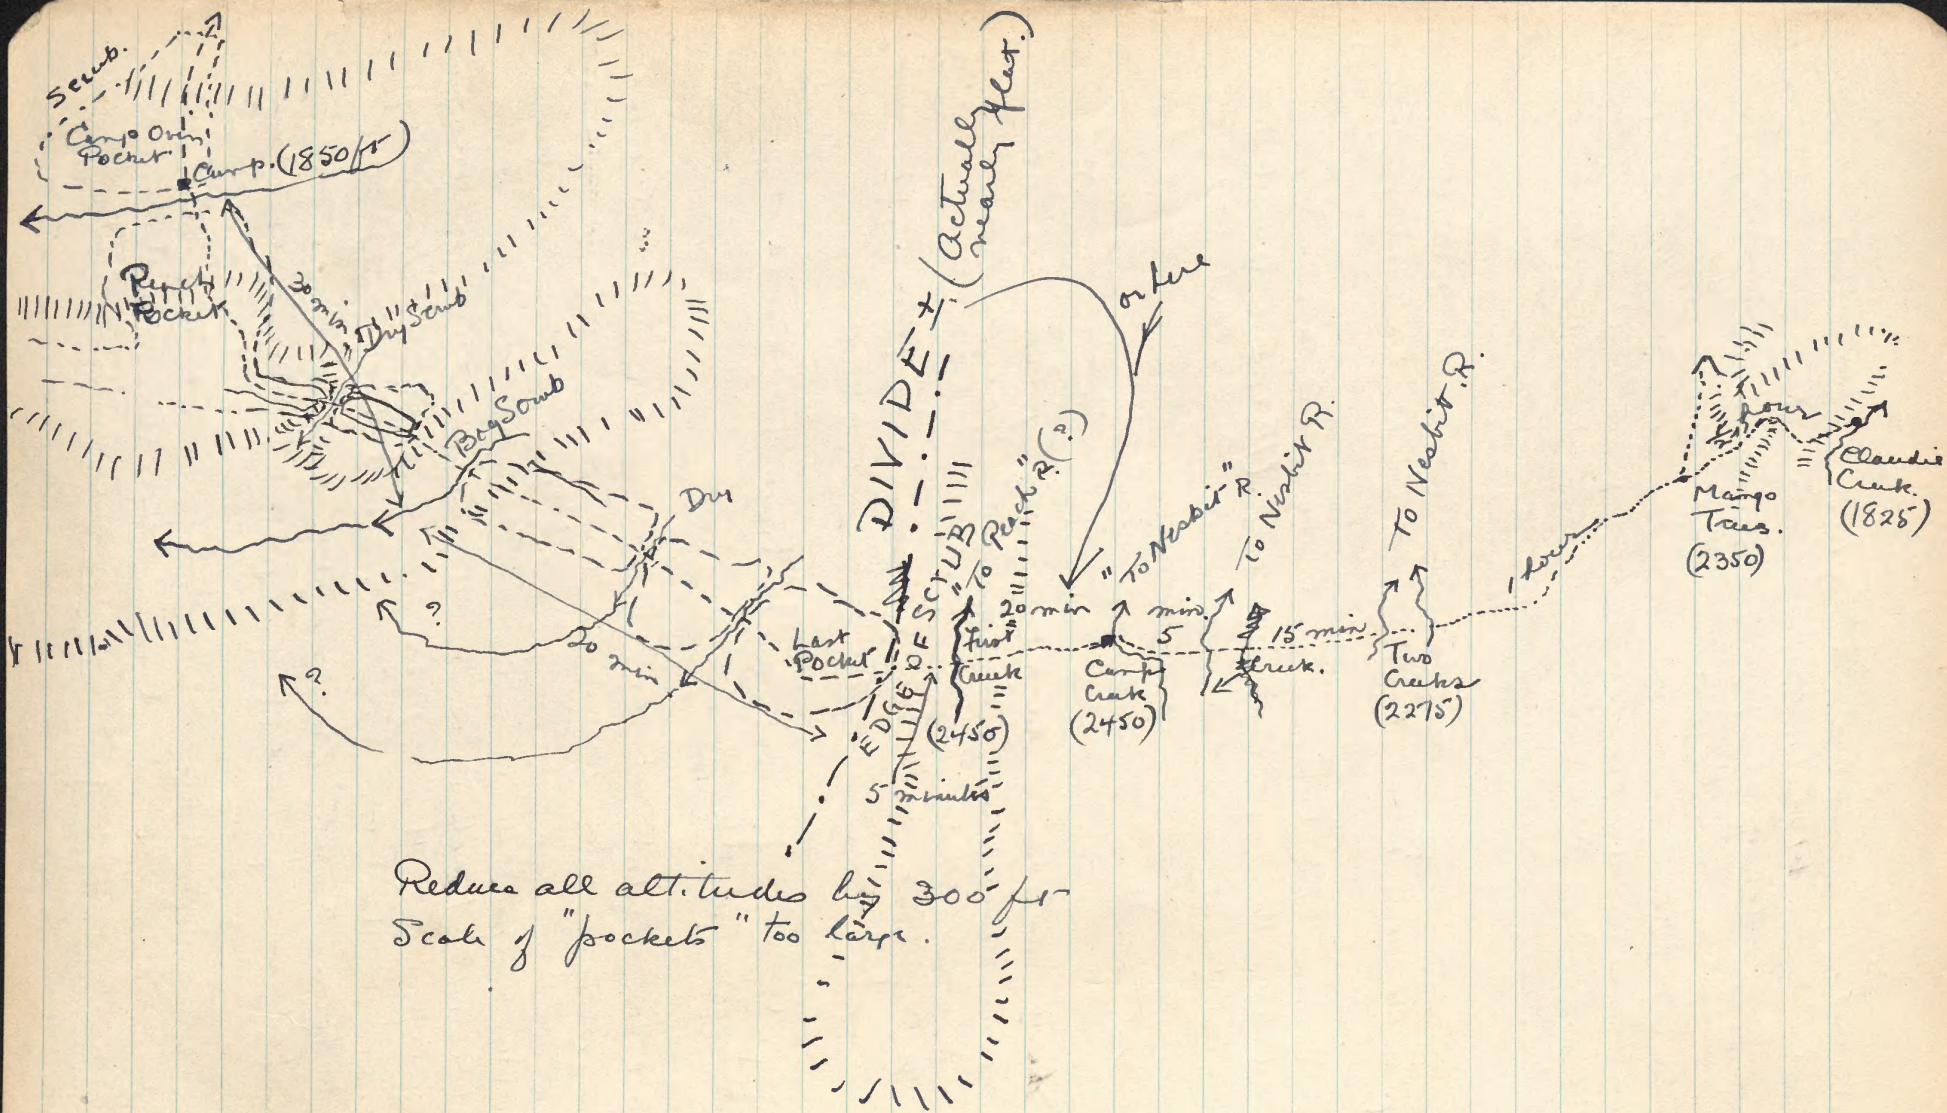 Scrub.
Camp Oven
Pocket
Camp. (1850 ft)
Pocket
30 min
Dry Scrub
Big Scrub
Dry
?
?
20
min
Last
Pocket
DIVIDE
(Actually
nearly flat.)
or here
EDGE OF SCRUB
"To Peach" R (?)
First
Creek
(2450)
5 minutes
20 min
"To Nesbit" R.
Camp
Creek
(2450)
5 min.
To Nesbit R.
Creek.
15 min
To Nesbit R.
Two
Creeks
(2275)
1 hour
Mango
Trees.
(2350)
hour
Claudie
Creek.
(1825)
Reduce all altitudes by 300 ft
Scale of "pockets" too large.